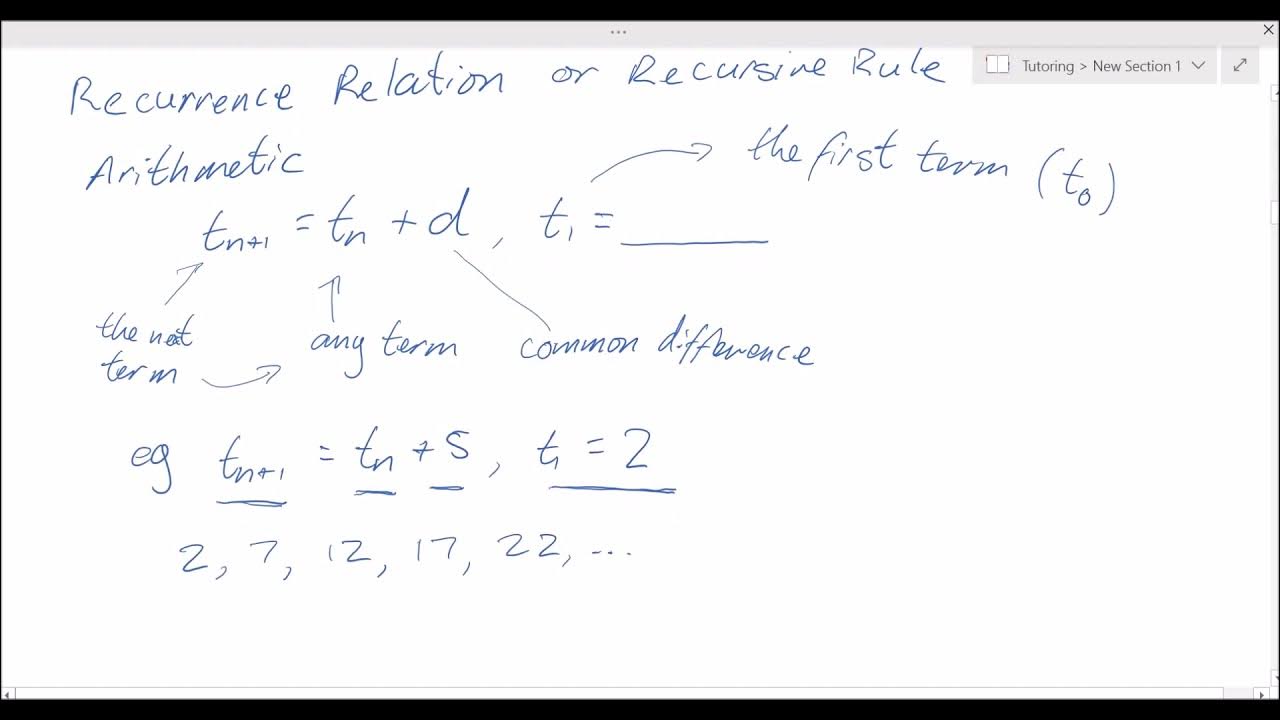 ...
Tutoring > New Section 1
Recurrence Relation or Recursive Rule
Arithmetic
the first term (t₀)
tₙ₊₁ = tₙ + d, t₁ = ______
the next term
any term
common difference
eg tₙ₊₁ = tₙ + 5, t₁ = 2
2, 7, 12, 17, 22, ...